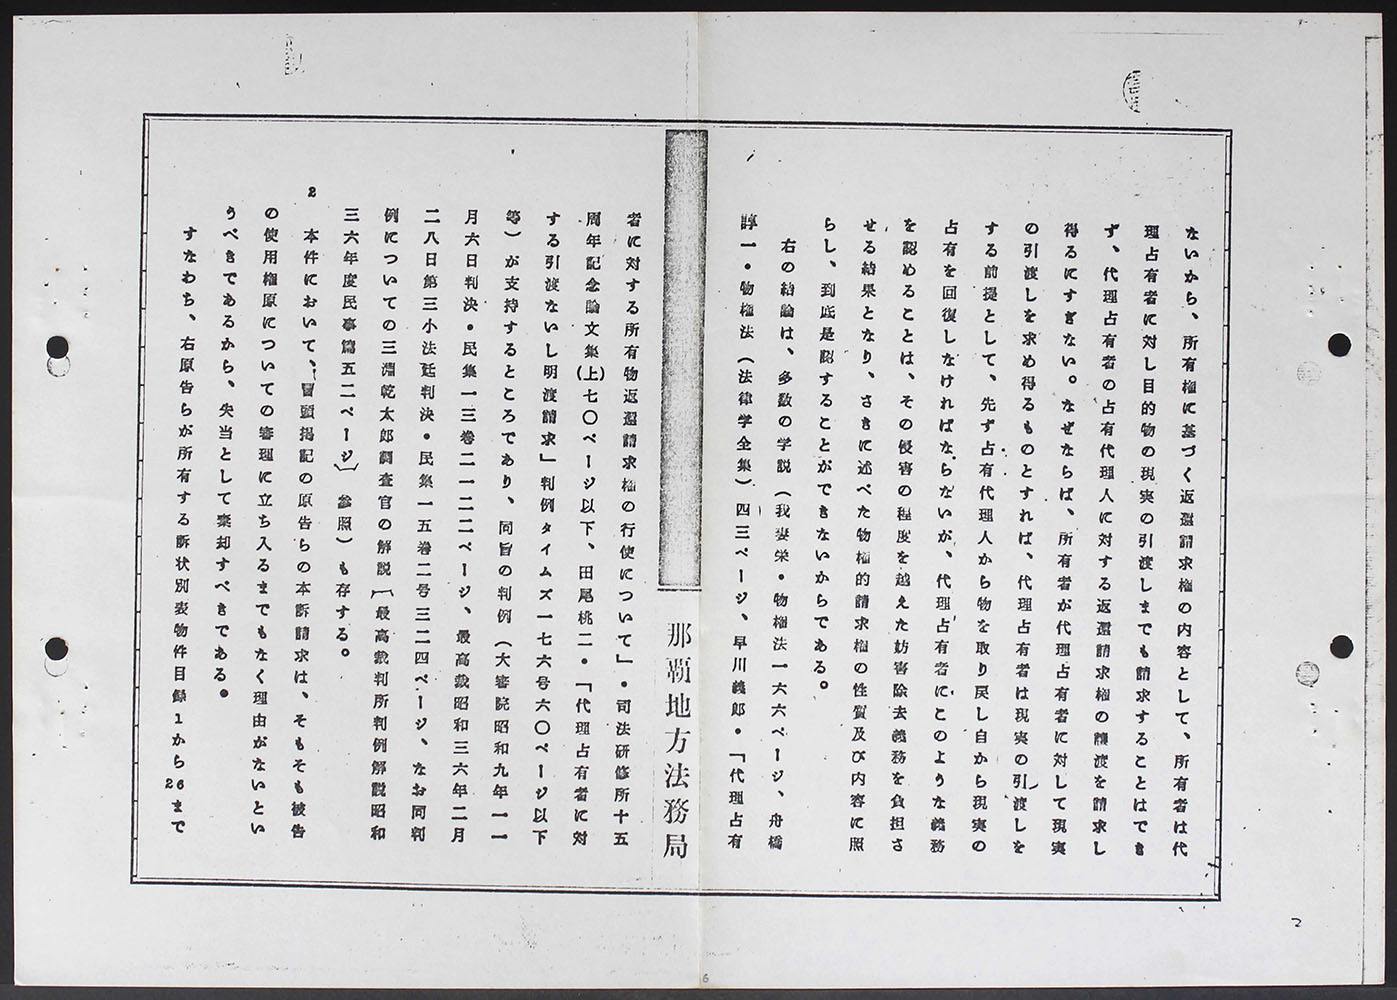 ないから、所有権に基づく返還請求権の内容として、所有者は代
理占有者に対し目的物の現実の引渡しまでも請求することはでき
ず、代理占有者の占有代理人に対する返還請求権の譲渡を請求し
得るにすぎない。なぜならば、所有者が代理占有者に対して現実
の引渡しを求め得るものとすれば、代理占有者は現実の引渡しを
する前提として、先ず占有代理人から物を取り戻し自から現実の
占有を回復しなければならないが、代理占有者にこのような義務
を認めることは、その侵害の程度を越えた妨害除去義務を負担さ
せる結果となり、さきに述べた物権的請求権の性質及び内容に照
らし、到底是認することができないからである。
右の結論は、多数の学説（我妻栄・物権法一六六ページ、舟橋
諄一・物権法（法律学全集）四三ページ、早川義郎・「代理占有
那覇地方法務局
者に対する所有物返還請求権の行使について」・司法研修所十五
周年記念論文集(上)七〇ページ以下、田尾桃二・「代理占有者に対
する引渡ないし明渡請求」判例タイムズ一七六号六〇ページ以下
等）が支持するところであり、同旨の判例（大審院昭和九年一一
月六日判決・民集一三巻二一二二ページ、最高裁昭和三六年二月
二八日第三小法廷判決・民集一五巻二号三二四ページ、なお同判
例についての三淵乾太郎調査官の解説〔最高裁判所判例解説昭和
三六年度民事篇五二ページ〕参照）も存する。
2 本件において、冒頭掲記の原告らの本訴請求は、そもそも被告
の使用権原についての審理に立ち入るまでもなく理由がないとい
うべきであるから、失当として棄却すべきである。
すなわち、右原告らが所有する訴状別表物件目録1から26まで
2
6